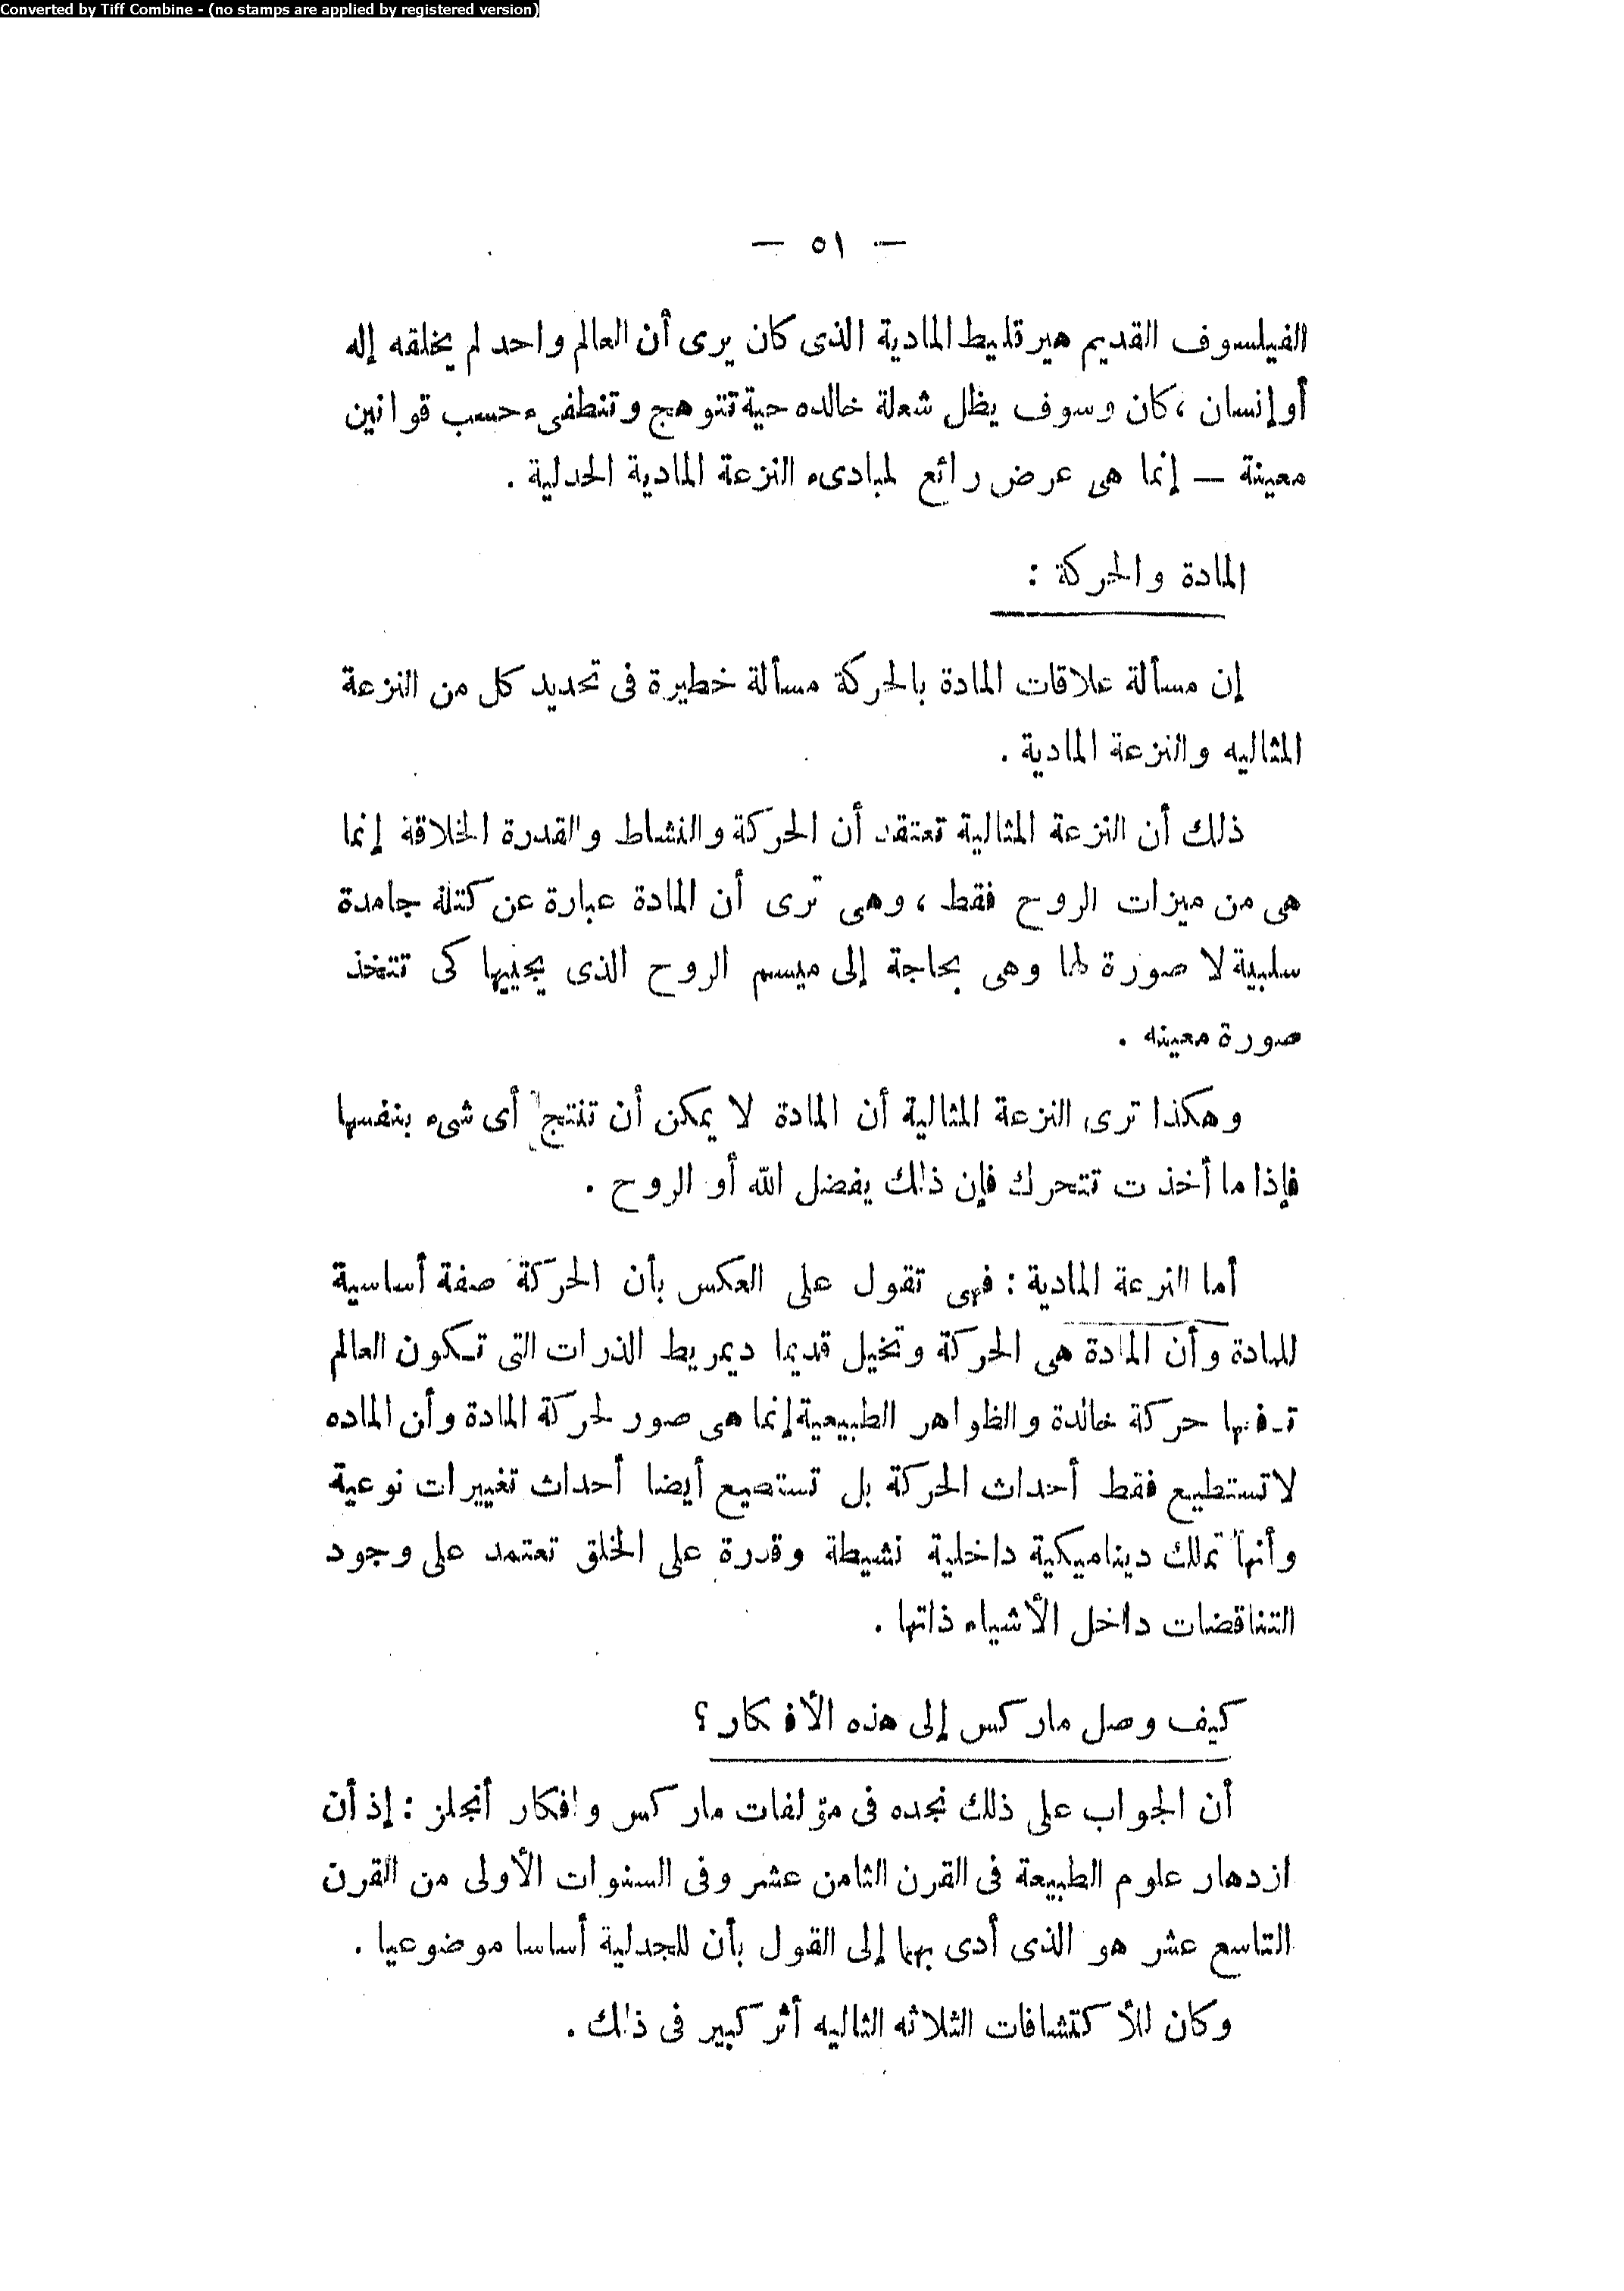 Converted by Tiff Combine - (no stamps are applied by registered version)
— ٥١ —
الفيلسوف القديم هيرقليط المادية الذى كان يرى أن العالم واحد لم يخلقه إله
أو إنسان ، كان وسوف يظل شعلة خالده حية تتوهج وتنطفىء حسب قوانين
معينة — إنما هى عرض رائع لمبادىء النزعة المادية الجدلية .
المادة والحركة :
إن مسألة علاقات المادة بالحركة مسألة خطيرة فى تحديد كل من النزعة
المثاليه والنزعة المادية .
ذلك أن النزعة المثالية تعتقد أن الحركة والنشاط والقدرة الخلاقة إنما
هى من ميزات الروح فقط ، وهى ترى أن المادة عبارة عن كتلة جامدة
سلبية لا صورة لها وهى بحاجة إلى ميسم الروح الذى يحييها كى تتخذ
صورة معينه .
وهكذا ترى النزعة المثالية أن المادة لا يمكن أن تنتج أى شىء بنفسها
فإذا ما أخذت تتحرك فإن ذلك يفضل الله أو الروح .
أما النزعة المادية : فهى تقول على العكس بأن الحركة صفة أساسية
للمادة وأن المادة هى الحركة وتخيل قديما ديمريط الذرات التى تكون العالم
حركة خالدة والظواهر الطبيعية إنما هى صور لحركة المادة وأن الماده
لا تستطيع فقط أحداث الحركة بل تستطيع أيضا أحداث تغييرات نوعية
وأنها تملك ديناميكية داخلية نشيطة وقدرة على الخلق تعتمد على وجود
التناقضات داخل الأشياء ذاتها .
كيف وصل ماركس إلى هذه الأفكار ؟
أن الجواب على ذلك نجده فى مؤلفات ماركس وافكار أنجلز : إذ أن
ازدهار علوم الطبيعة فى القرن الثامن عشر وفى السنوات الأولى من القرن
التاسع عشر هو الذى أدى بهما إلى القول بأن للجدلية أساسا موضوعيا .
وكان للأكتشافات الثلاثه التاليه أثر كبير فى ذلك .